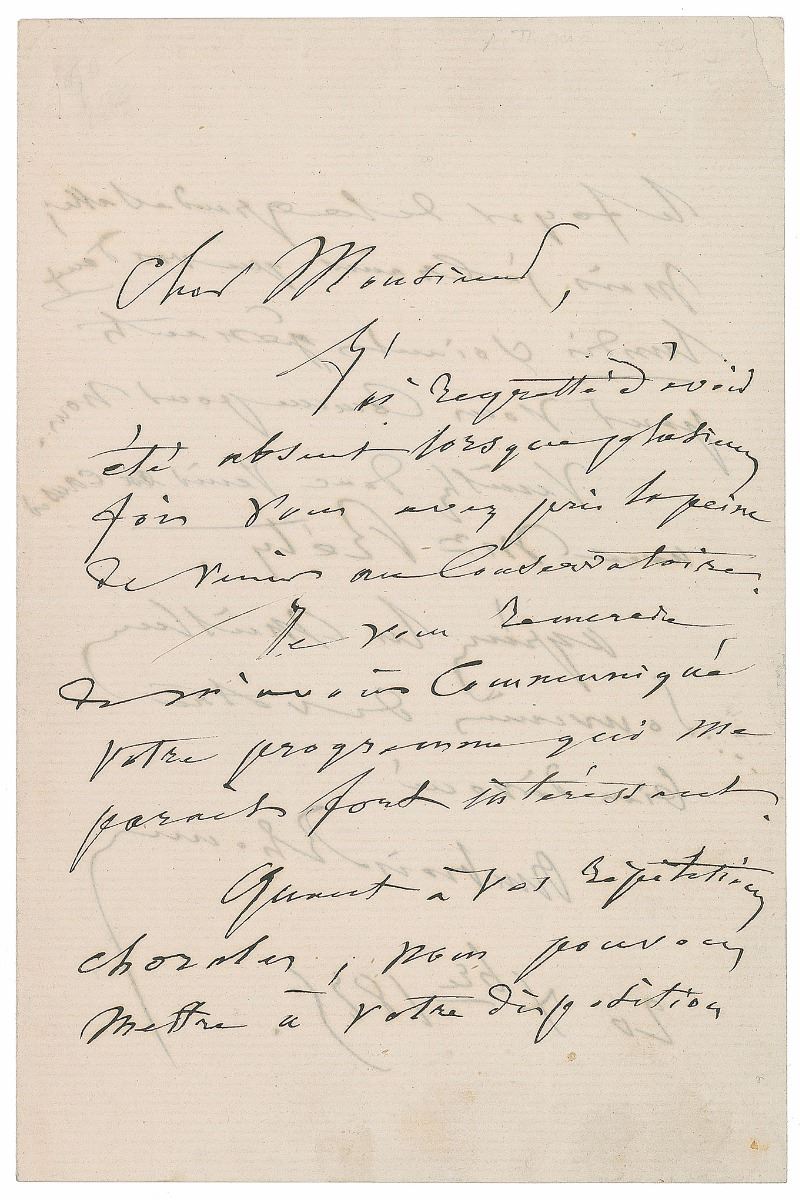 Cher Monsieur,
J'ai regretté d'avoir
été absent lorsque plusieurs
fois vous avez pris la peine
de venir au Conservatoire.
Je vous remercie
de m'avoir communiqué
votre programme qui me
paraît fort intéressant.
Quant à vos répétitions
chorales, nous pouvons
mettre à votre disposition